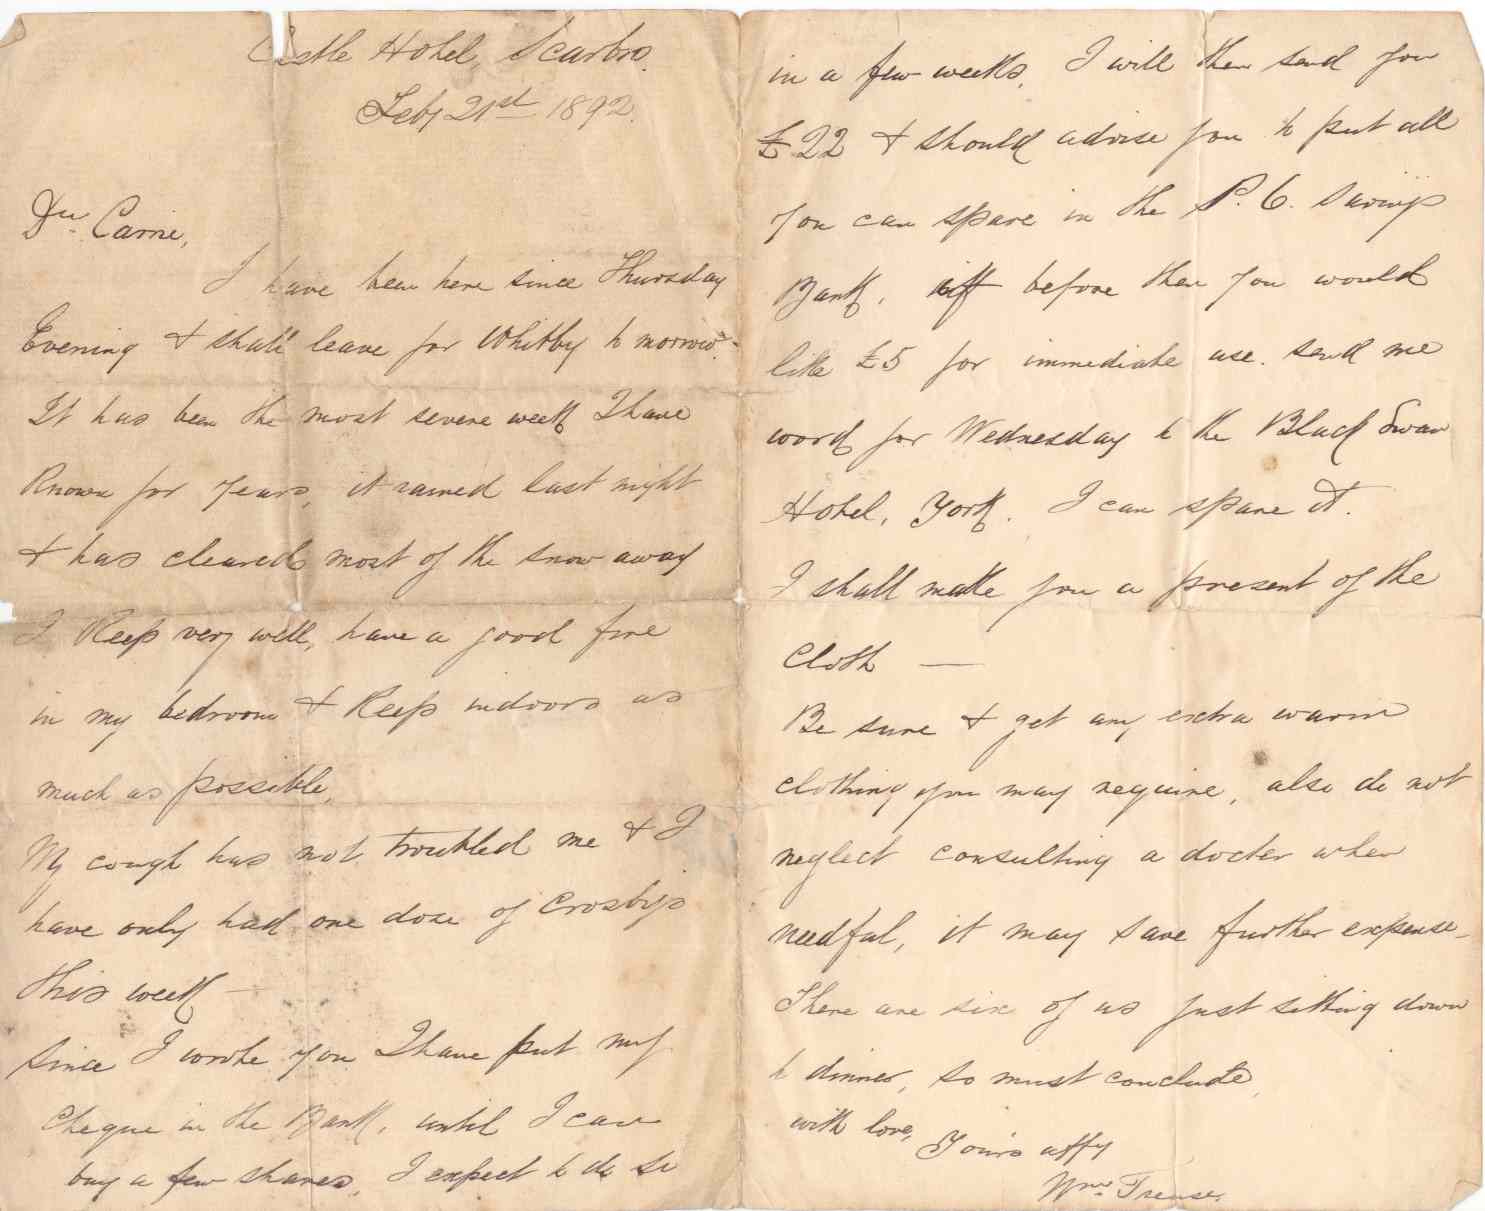 Castle Hotel, Scarbro.
Feby 21st 1892.
Dr. Carrie,
I have been here since Thursday
Evening & shall leave for Whitby to morrow.
It has been the most severe week I have
known for years, it rained last night
& has cleared most of the snow away
I keep very well, have a good fire
in my bedroom & keep indoors as
much as possible,
My cough has not troubled me & I
have only had one dose of Crosby's
this week —
Since I wrote you I have put my
cheque in the Bank, until I can
buy a few shares, I expect to do so
in a few weeks, I will then send you
£22 & should advise you to put all
you can spare in the P.O. Savings
Bank, if before then you would
like £5 for immediate use. send me
word for Wednesday to the Black Swan
Hotel, York. I can spare it.
I shall make you a present of the
Cloth —
Be sure & get any extra warm
clothing you may require, also do not
neglect consulting a doctor when
needful, it may save further expense.
There are six of us just sitting down
to dinner, so must conclude,
with love,
Yours affy
Wm.